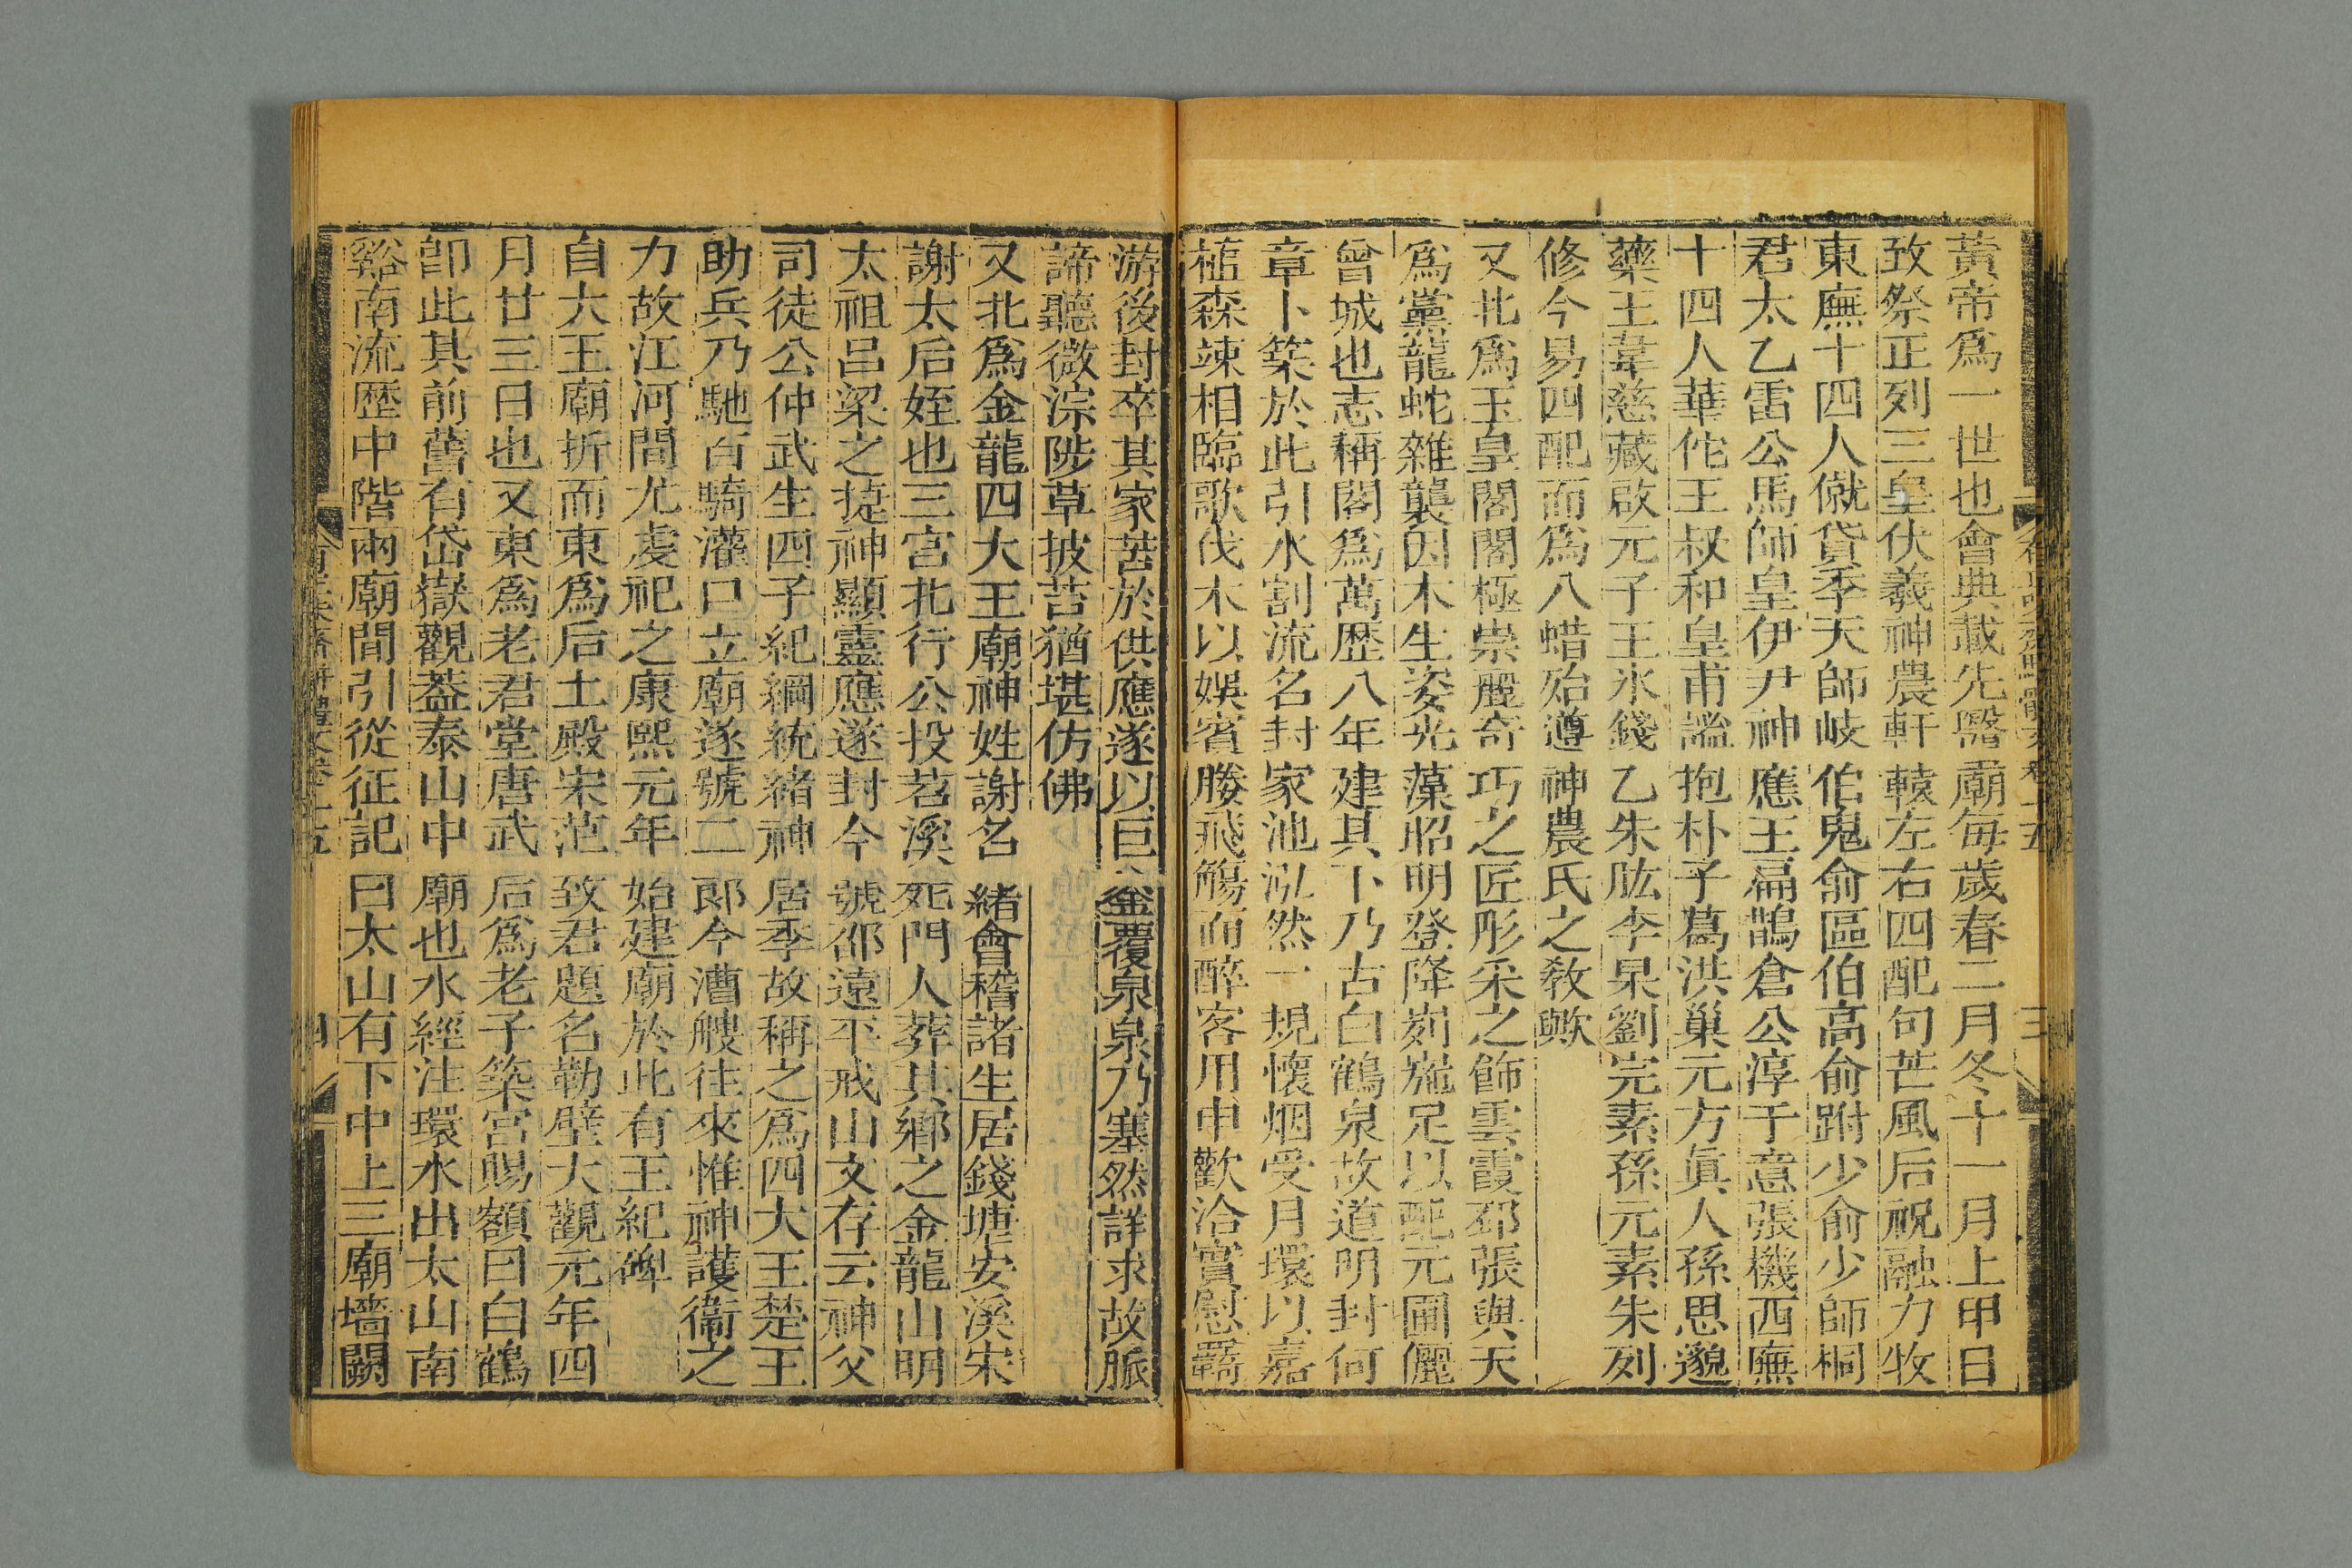 黃帝爲一世也會典載先醫廟每歲春二月冬十一月上甲日
致祭正列三皇伏羲神農軒轅左右四配句芒風后祝融力牧
東廡十四人僦貸季天師岐伯鬼俞區伯高俞跗少俞少師桐
君太乙雷公馬師皇伊尹神應王扁鵲倉公淳于意張機西廡
十四人華佗王叔和皇甫謐抱朴子葛洪巢元方眞人孫思邈
藥王韋慈藏啟元子王氷錢乙朱肱李杲劉完素孫元素朱列
修今易四配而爲八蜡殆遵神農氏之敎歟
又北爲玉皇閣閣極崇麗奇巧之匠彤采之飾雲霞邳張與天
爲黨龍蛇雜襲因木生姿光藻昭明登降峛崺足以配元圃儷
曾城也志稱閣爲萬歷八年建其下乃古白鶴泉故道明封何
章卜築於此引水割流名封家池泓然一規懷烟受月環以嘉
植森竦相臨歌伐木以娛賓勝飛觴而醉客用申歡洽實慰羇
游後封卒其家苦於供應遂以巨釜覆泉泉乃塞然詳求故脈
諦聽微淙陟草披苔猶堪仿佛
又北爲金龍四大王廟神姓謝名緒會稽諸生居錢塘安溪宋
謝太后姪也三宮北行公投苕溪死門人葬其鄉之金龍山明
太祖呂梁之捷神顯靈應遂封今號邵遠平戒山文存云神父
司徒公仲武生四子紀綱統緒神居季故稱之爲四大王楚王
助兵乃馳百騎灌口立廟遂號二郎今漕艘往來惟神護衞之
力故江河間尤虔祀之康熙元年始建廟於此有王紀碑
自大王廟折而東爲后土殿宋范致君題名勒壁大觀元年四
月廿三日也又東爲老君堂唐武后爲老子築宮賜額曰白鶴
卽此其前舊有岱嶽觀葢泰山中廟也水經注環水出太山南
谿南流歷中階兩廟間引從征記曰太山有下中上三廟墻闕
四